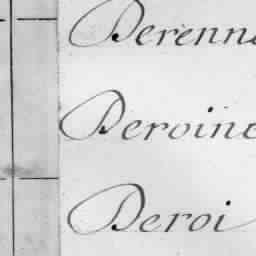 Derenne
Deroine
Deroi